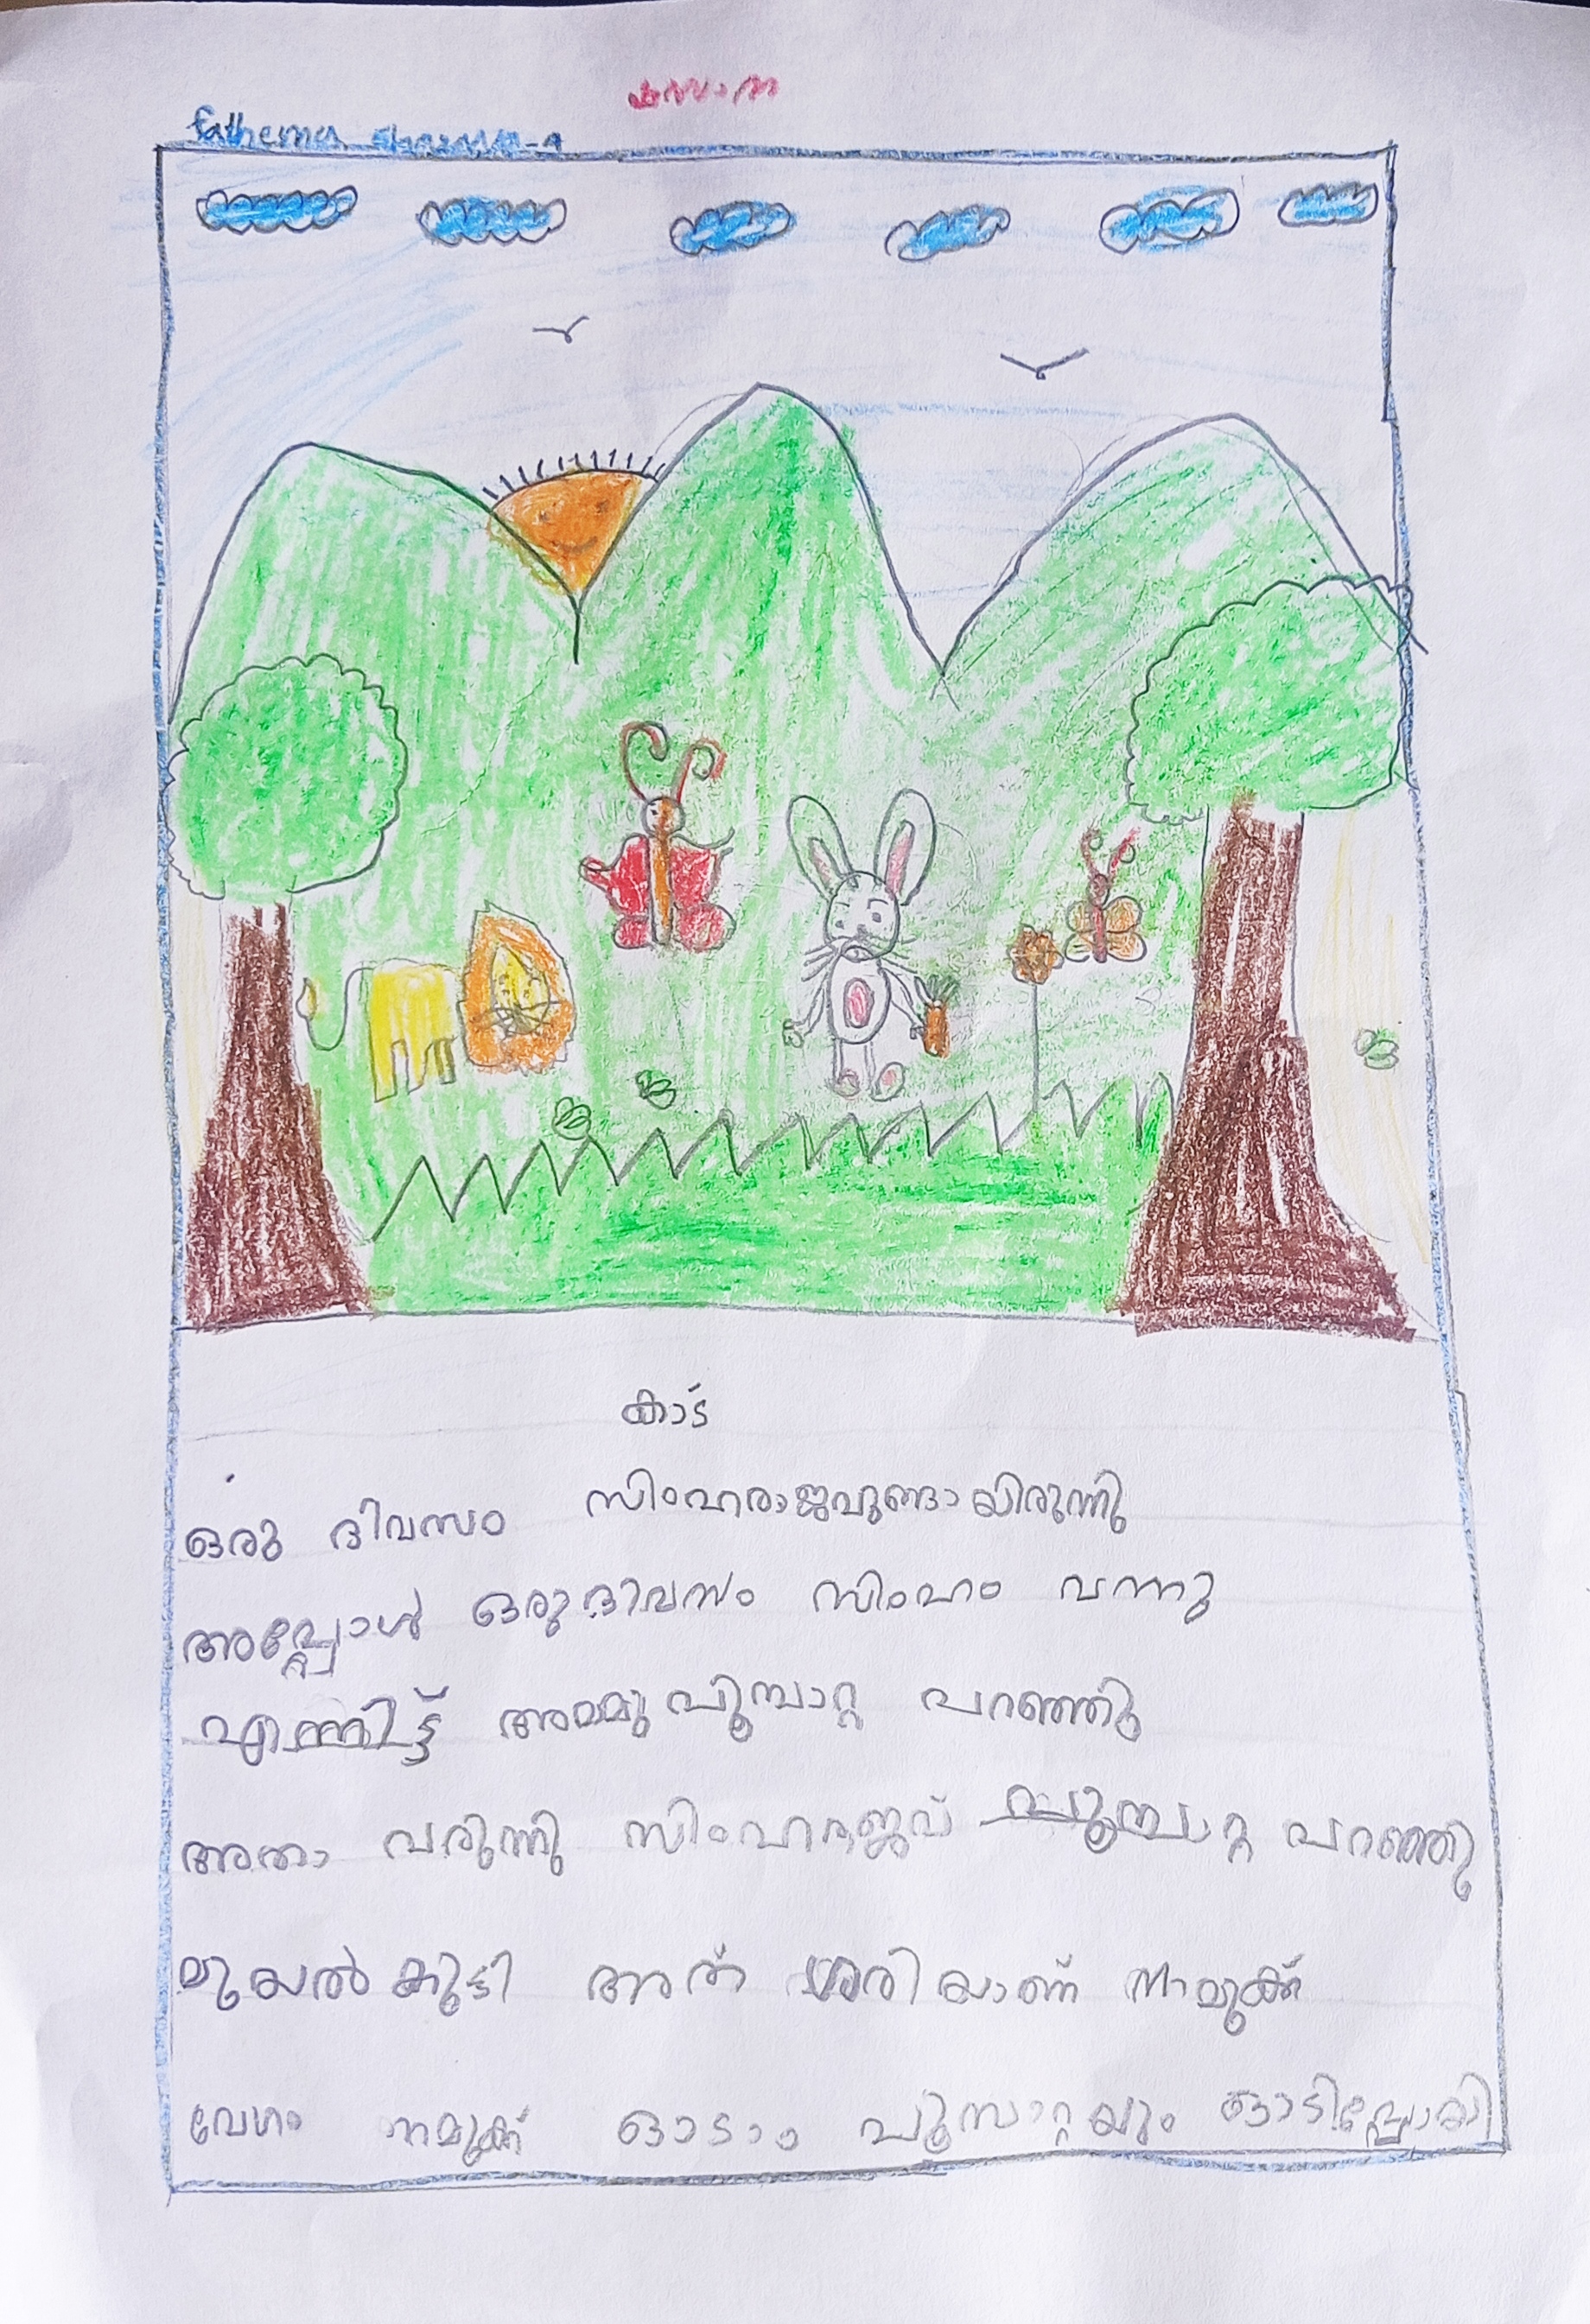 fathema
കാട
ഒരു ദിവസം സിംഹരാജവുണ്ടായിരുന്നു
അപ്പോൾ ഒരു ദിവസം സിംഹം വന്നു
എന്നിട്ട് അമ്മു പൂമ്പാറ്റ പറഞ്ഞു
അതാ വരുന്നു സിംഹരാജവ് പൂമ്പാറ്റ പറഞ്ഞു
മുയൽ കുട്ടി അത് ശരിയാണ് നമുക്ക്
വേഗം നമുക്ക് ഓടാം പൂമ്പാറ്റയും ഓടിപ്പോയി